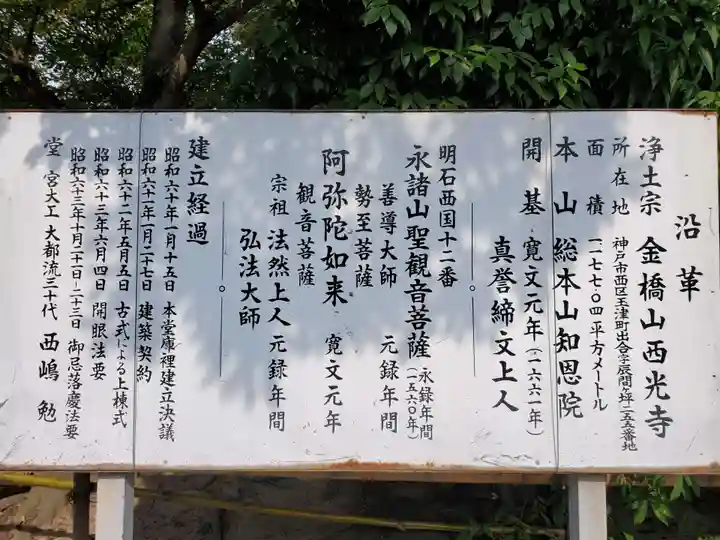 沿革
浄土宗 金橋山西光寺
所在地 神戸市西区玉津町出合字辰間ヶ坪二五五番地
面積 一二七七〇四平方メートル
本山 総本山知恩院
開基 寛文元年(一六六一年)
真誉締文上人
明石西国十二番
永諸山聖観音菩薩 永録年間(一五六〇年)
善導大師 元録年間
勢至菩薩
阿弥陀如来 寛文元年
観音菩薩
宗祖 法然上人 元録年間
弘法大師
建立経過
昭和六十年一月十五日 本堂庫裡建立決議
昭和六十一年一月二十七日 建築契約
昭和六十二年五月五日 古式による上棟式
昭和六十三年六月四日 開眼法要
昭和六十三年十月二十一日〜二十三日 御忌落慶法要
堂宮大工 大都流三十代 西嶋勉